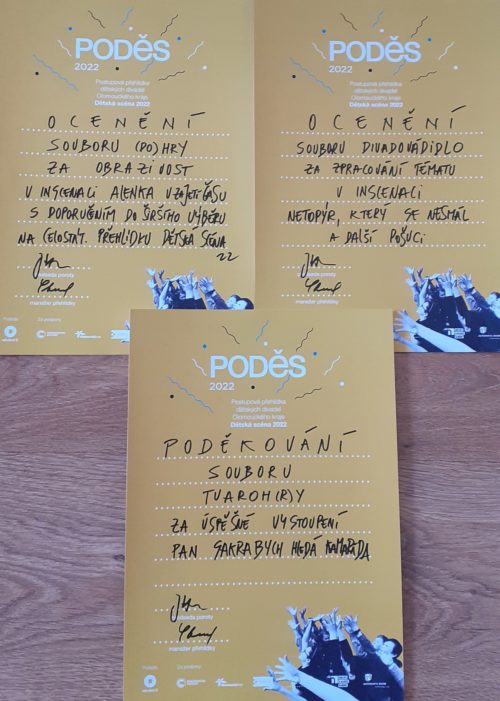 PODĚS
2022
Postupová přehlídka
dětských divadel
Olomouckého kraje
Dětská scéna 2022
OCENĚNÍ
SOUBORU (PO)HRY
ZA OBRAZIVOST
V INSCENACI ALENKA V ZAJETÍ ČASU
S DOPORUČENÍM DO ŠIRŠÍHO VÝBĚRU
NA CELOSTÁT. PŘEHLÍDKU DĚTSKÁ SCÉNA
22
předseda poroty
manažer přehlídky
Pořádá:
Za podpory:
PODĚS
2022
Postupová přehlídka
dětských divadel
Olomouckého kraje
Dětská scéna 2022
OCENĚNÍ
SOUBORU DIVADOVÁDIDLO
ZA ZPRACOVÁNÍ TÉMATU
V INSCENACI
NETOPÝR, KTERÝ SE NESMÁL
A DALŠÍ POŠUCI
předseda poroty
manažer přehlídky
Pořádá:
Za podpory:
PODĚS
2022
Postupová přehlídka
dětských divadel
Olomouckého kraje
Dětská scéna 2022
PODĚKOVÁNÍ
SOUBORU
TVAROH(R)Y
ZA ÚSPĚŠNÉ VYSTOUPENÍ
PAN SAKRABYCH HLEDÁ KAMARÁDA
předseda poroty
manažer přehlídky
Pořádá:
Za podpory: